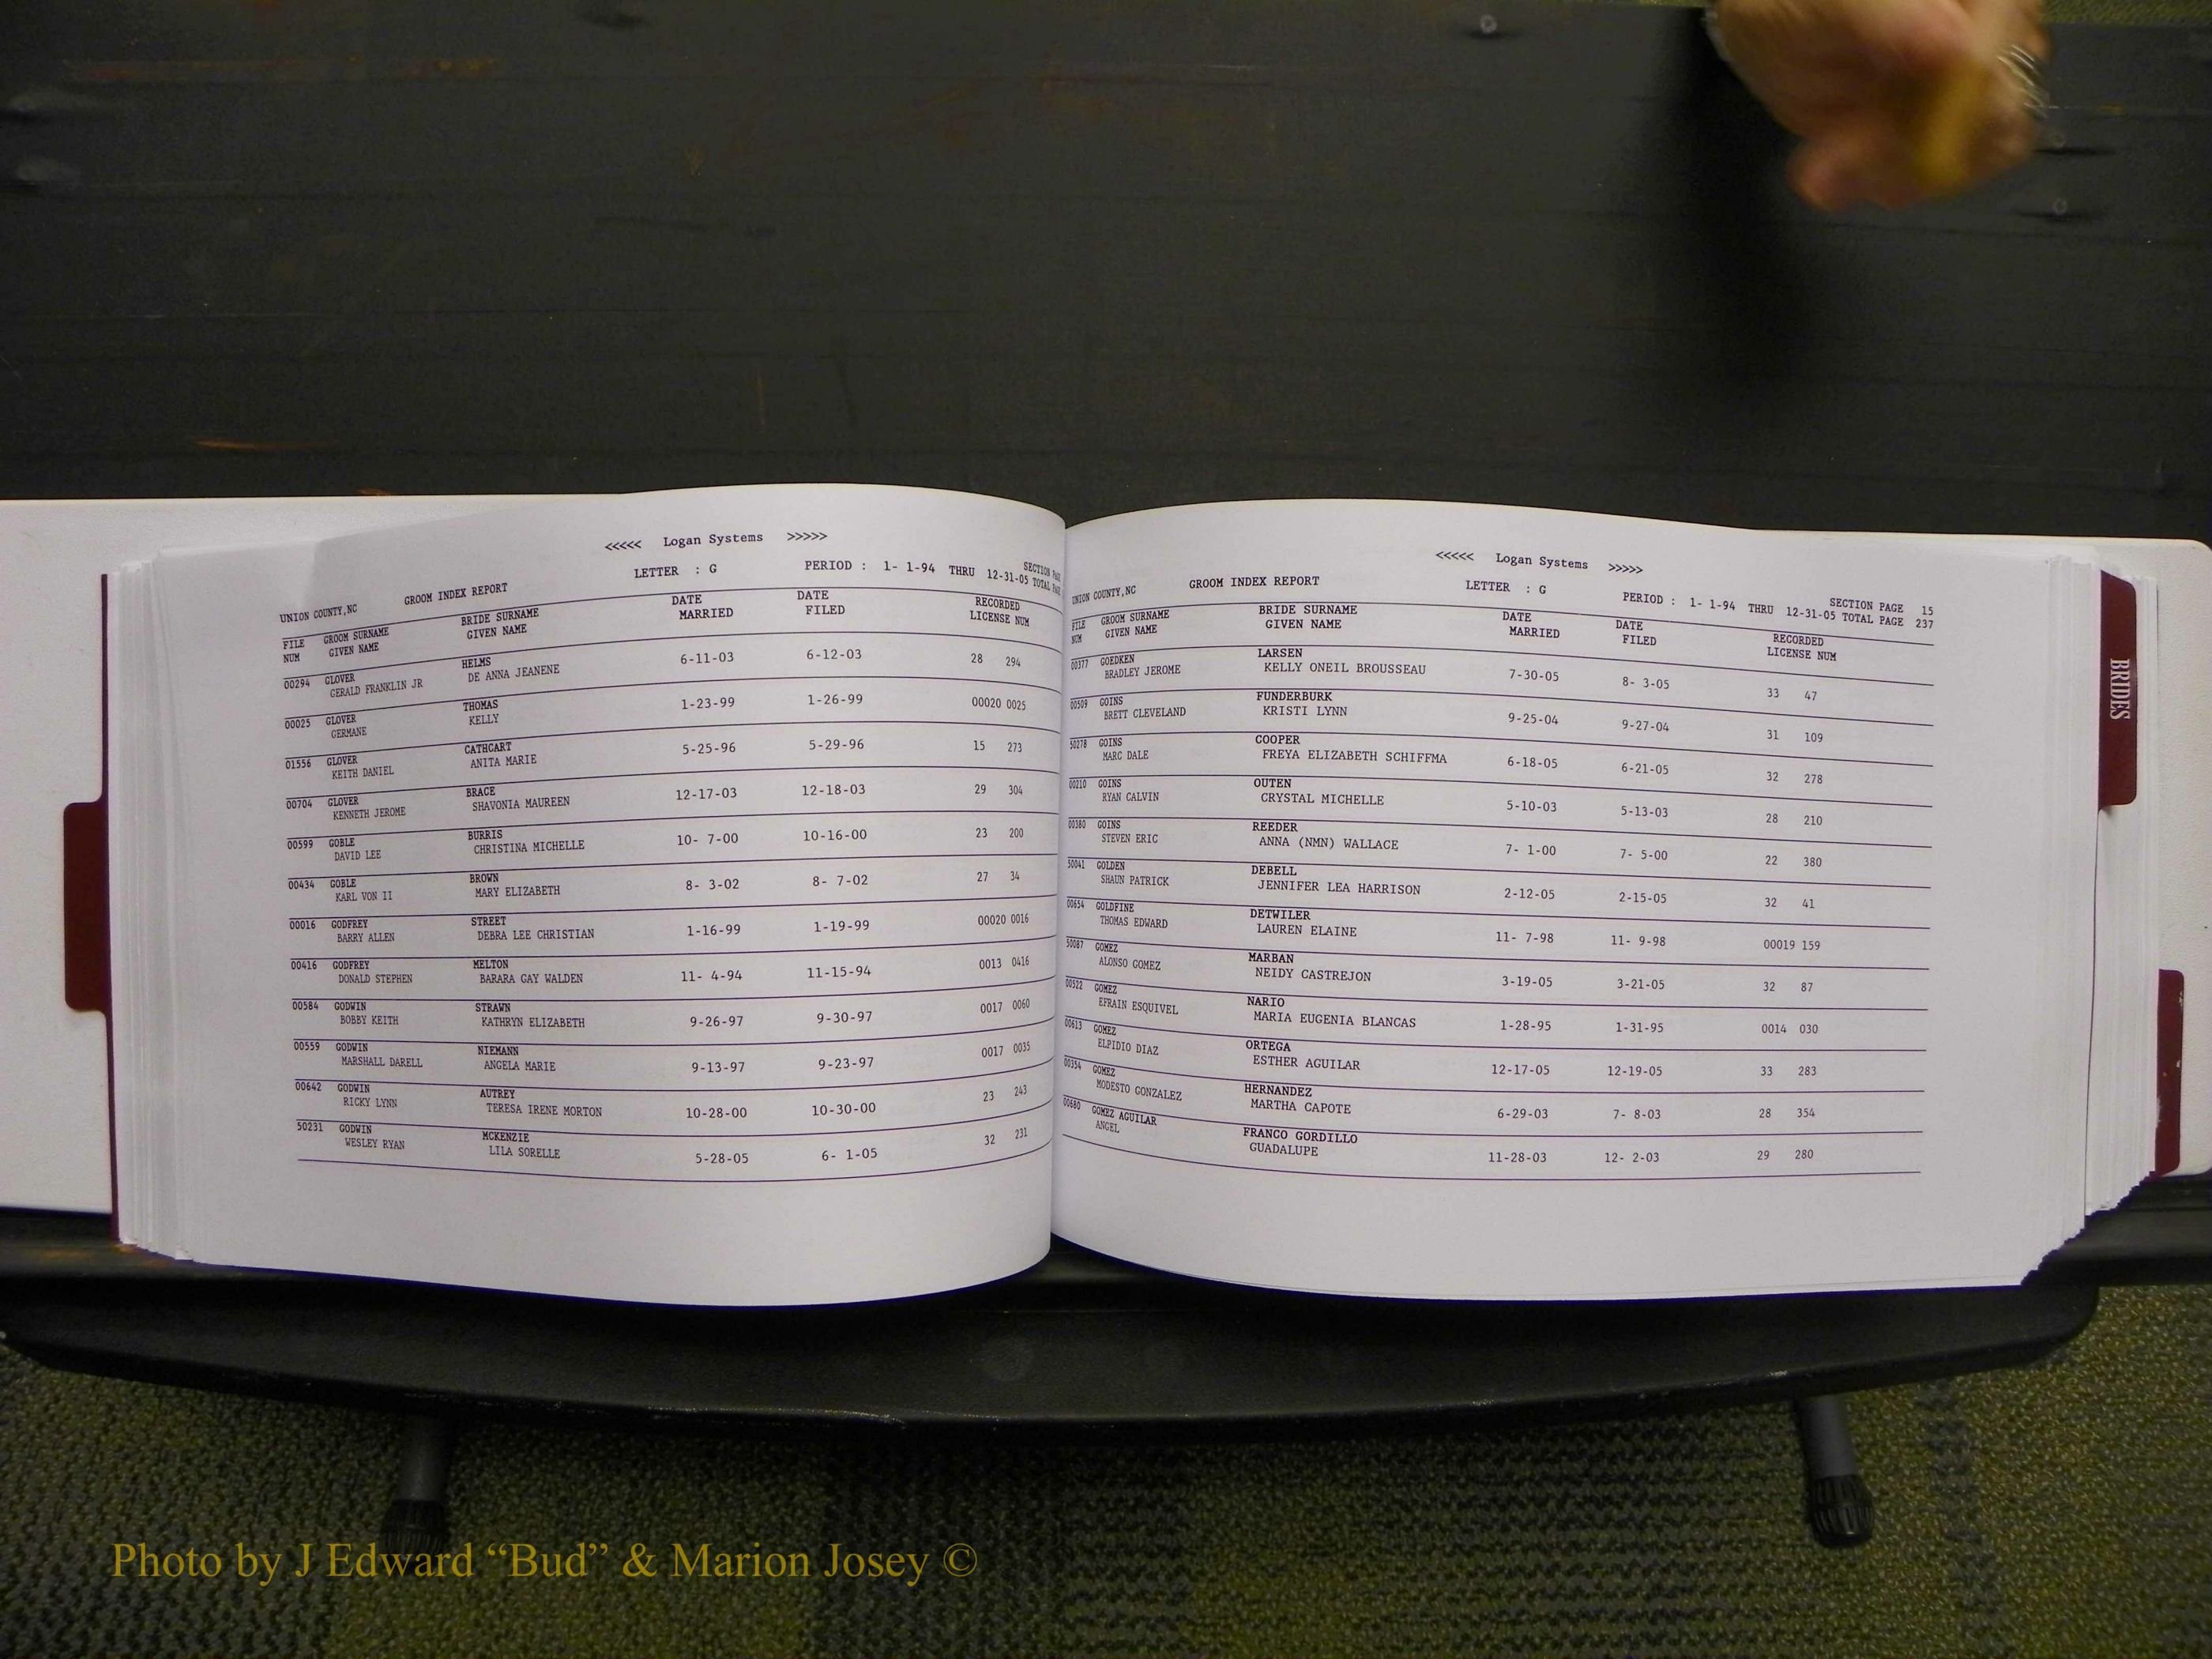 <<<<< Logan Systems >>>>>
UNION COUNTY,NC GROOM INDEX REPORT LETTER : G PERIOD : 1- 1-94 THRU 12-31-05 SECTION
TOTAL
FILE GROOM SURNAME BRIDE SURNAME DATE DATE RECORDED
NUM GIVEN NAME GIVEN NAME MARRIED FILED LICENSE NUM
00294 GLOVER HELMS 6-11-03 6-12-03 28 294
GERALD FRANKLIN JR DE ANNA JEANENE
00025 GLOVER THOMAS 1-23-99 1-26-99 00020 0025
GERMANE KELLY
01556 GLOVER CATHCART 5-25-96 5-29-96 15 273
KEITH DANIEL ANITA MARIE
00704 GLOVER BRACE 12-17-03 12-18-03 29 304
KENNETH JEROME SHAVONIA MAUREEN
00599 GOBLE BURRIS 10- 7-00 10-16-00 23 200
DAVID LEE CHRISTINA MICHELLE
00434 GOBLE BROWN 8- 3-02 8- 7-02 27 34
KARL VON II MARY ELIZABETH
00016 GODFREY STREET 1-16-99 1-19-99 00020 0016
BARRY ALLEN DEBRA LEE CHRISTIAN
00416 GODFREY MELTON 11- 4-94 11-15-94 0013 0416
DONALD STEPHEN BARARA GAY WALDEN
00584 GODWIN STRAWN 9-26-97 9-30-97 0017 0060
BOBBY KEITH KATHRYN ELIZABETH
00559 GODWIN NIEMANN 9-13-97 9-23-97 0017 0035
MARSHALL DARELL ANGELA MARIE
00642 GODWIN AUTREY 10-28-00 10-30-00 23 243
RICKY LYNN TERESA IRENE MORTON
50231 GODWIN MCKENZIE 5-28-05 6- 1-05 32 231
WESLEY RYAN LILA SORELLE
<<<<< Logan Systems >>>>>
UNION COUNTY,NC GROOM INDEX REPORT LETTER : G PERIOD : 1- 1-94 THRU 12-31-05 SECTION PAGE 15
TOTAL PAGE 237
FILE GROOM SURNAME BRIDE SURNAME DATE DATE RECORDED
NUM GIVEN NAME GIVEN NAME MARRIED FILED LICENSE NUM
00377 GOEDKEN LARSEN 7-30-05 8- 3-05 33 47
BRADLEY JEROME KELLY ONEIL BROUSSEAU
00509 GOINS FUNDERBURK 9-25-04 9-27-04 31 109
BRETT CLEVELAND KRISTI LYNN
50278 GOINS COOPER 6-18-05 6-21-05 32 278
MARC DALE FREYA ELIZABETH SCHIFFMA
00210 GOINS OUTEN 5-10-03 5-13-03 28 210
RYAN CALVIN CRYSTAL MICHELLE
00380 GOINS REEDER 7- 1-00 7- 5-00 22 380
STEVEN ERIC ANNA (NMN) WALLACE
50041 GOLDEN DEBELL 2-12-05 2-15-05 32 41
SHAUN PATRICK JENNIFER LEA HARRISON
00654 GOLDFINE DETWILER 11- 7-98 11- 9-98 00019 159
THOMAS EDWARD LAUREN ELAINE
50087 GOMEZ MARBAN 3-19-05 3-21-05 32 87
ALONSO GOMEZ NEIDY CASTREJON
00522 GOMEZ NARIO 1-28-95 1-31-95 0014 030
EFRAIN ESQUIVEL MARIA EUGENIA BLANCAS
00613 GOMEZ ORTEGA 12-17-05 12-19-05 33 283
ELPIDIO DIAZ ESTHER AGUILAR
00354 GOMEZ HERNANDEZ 6-29-03 7- 8-03 28 354
MODESTO GONZALEZ MARTHA CAPOTE
00680 GOMEZ AGUILAR FRANCO GORDILLO 11-28-03 12- 2-03 29 280
ANGEL GUADALUPE
BRIDES
Photo by J Edward “Bud” & Marion Josey ©